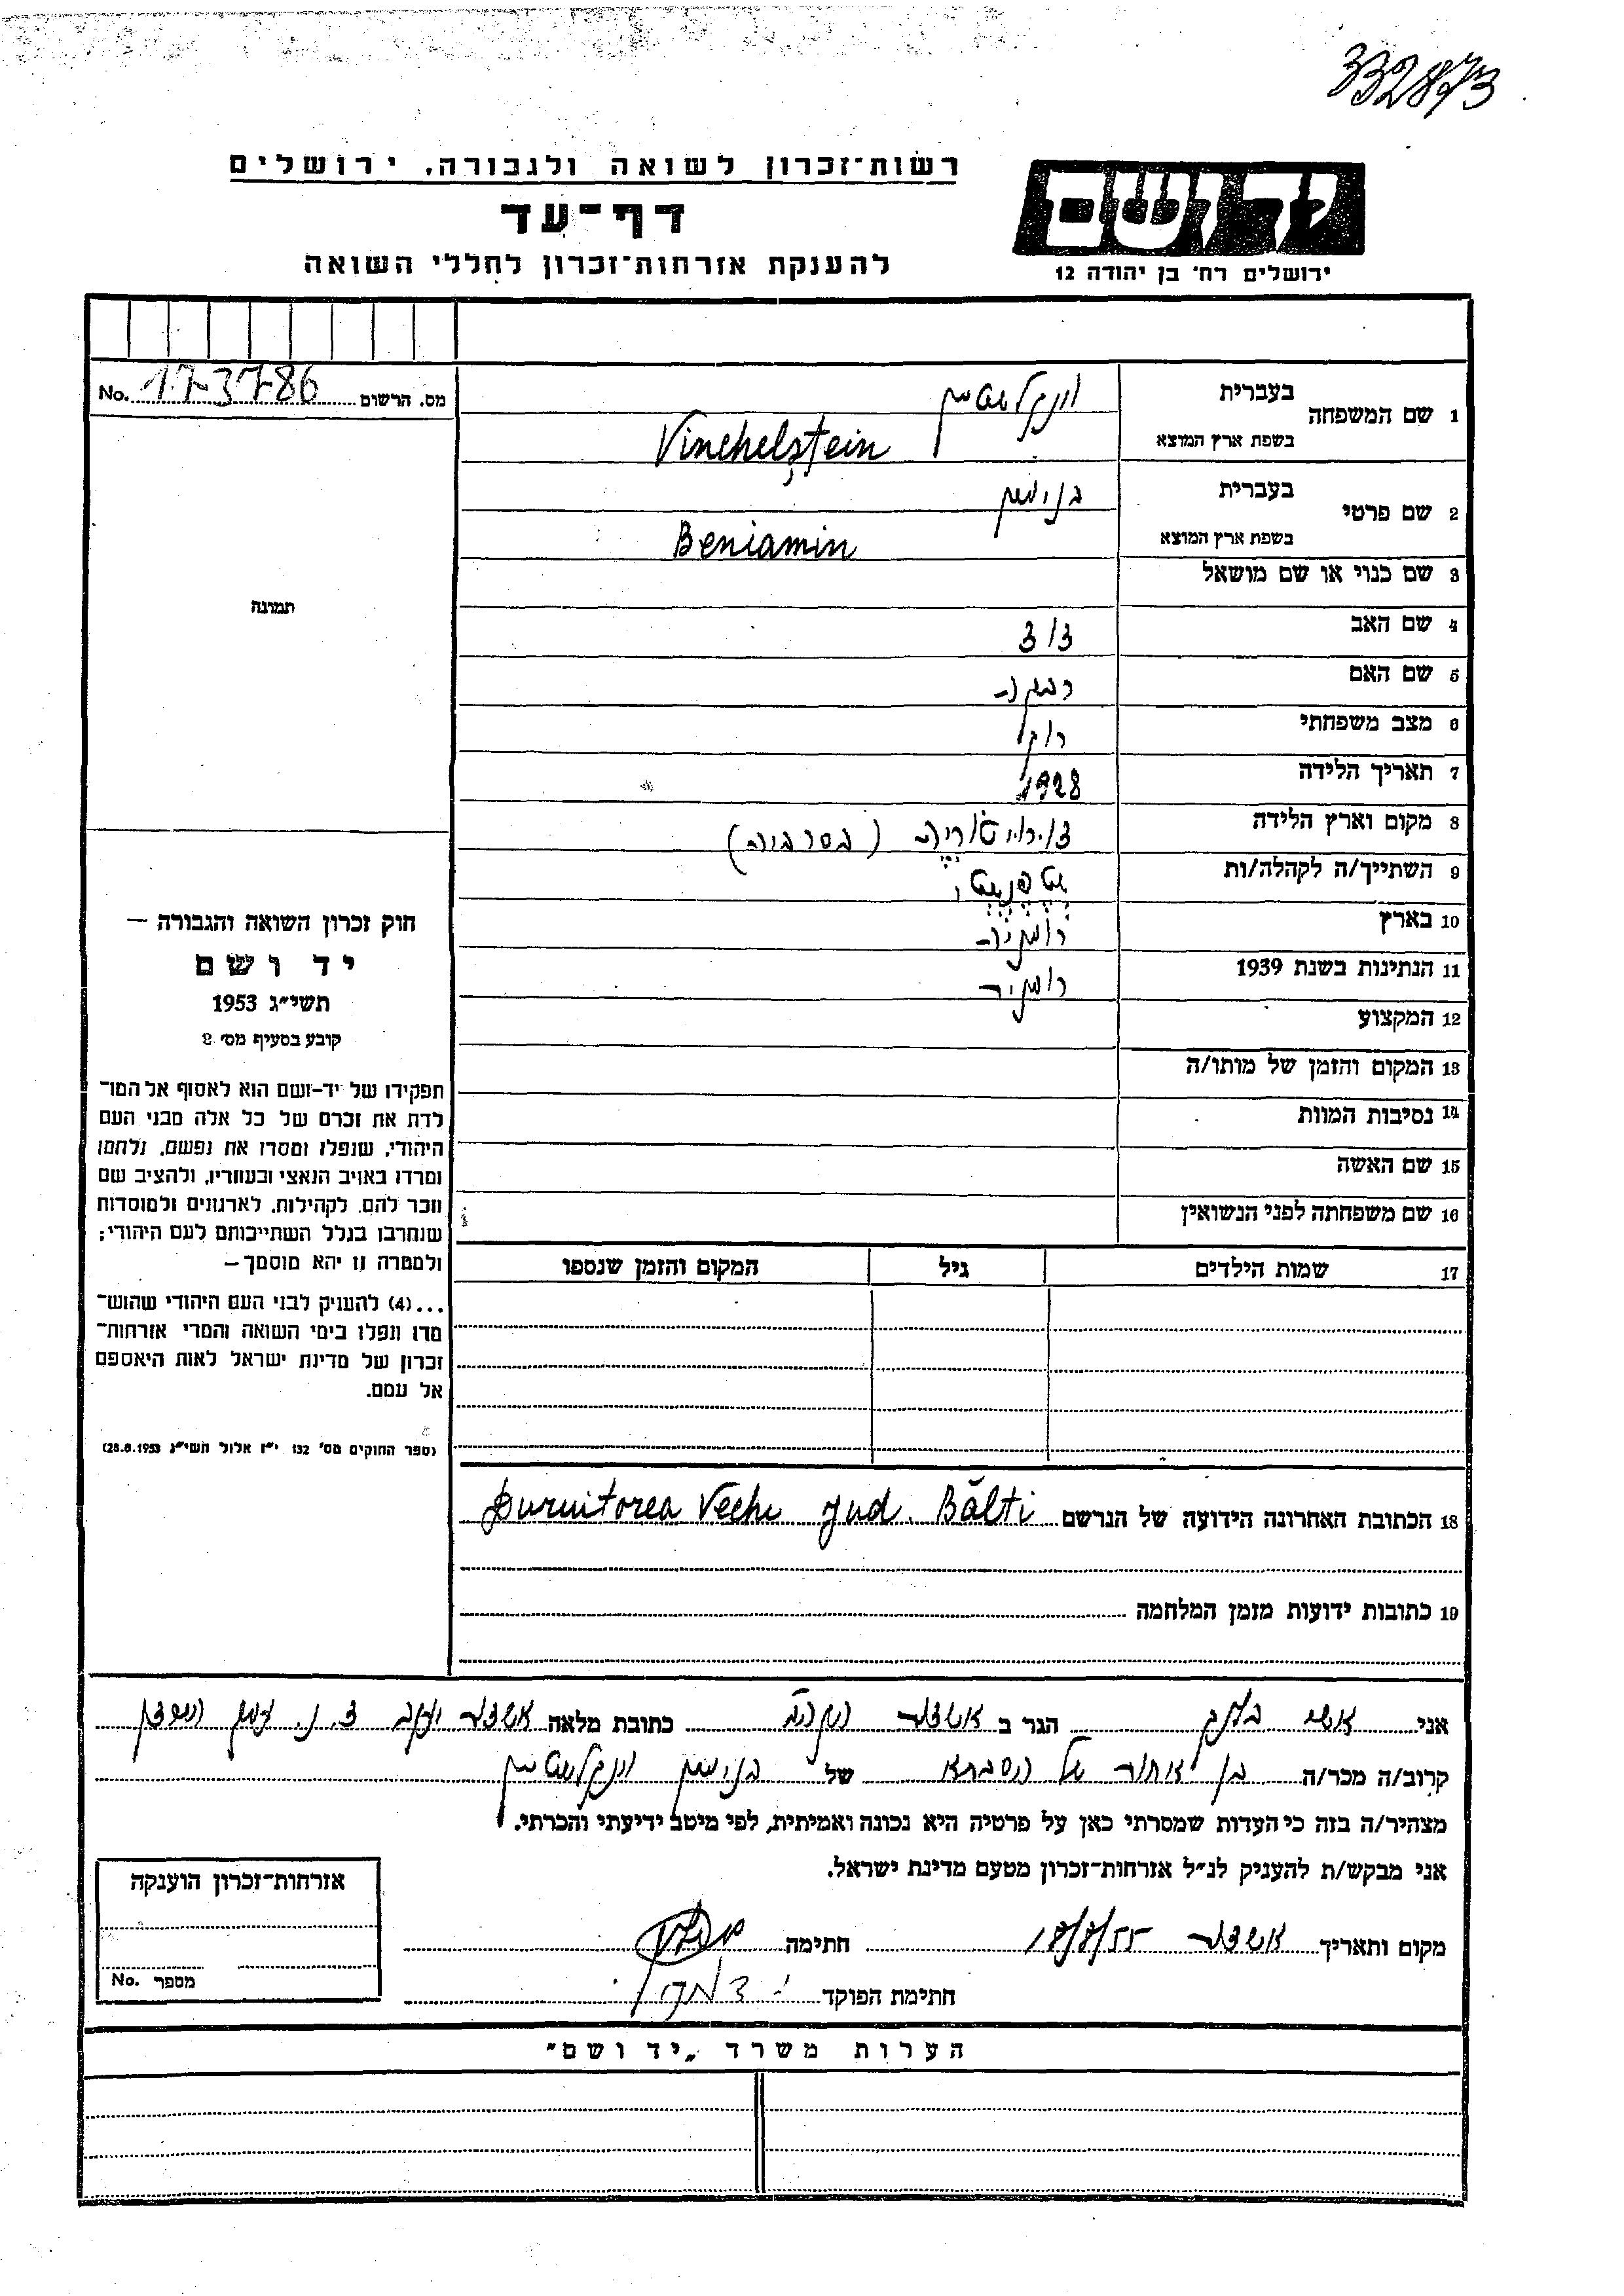 332873
רשות־זכרון לשואה ולגבורה, ירושלים
ידושם
דף־עד
להענקת אזרחות־זכרון לחללי השואה
ירושלים רח' בן יהודה 12
מס. הרשום 17-3786 No.
1 שם המשפחה בעברית וינקלשטיין
בשפת ארץ המוצא Vinchelștein
2 שם פרטי בעברית בנימין
בשפת ארץ המוצא Beniamin
3 שם כנוי או שם מושאל
4 שם האב
5 שם האם רבקה
6 מצב משפחתי רוק
7 תאריך הלידה 1928
8 מקום וארץ הלידה (בסרביה)
9 השתייך/ה לקהלה/ות
10 בארץ רומניה
11 הנתינות בשנת 1939 רומנית
12 המקצוע
13 המקום והזמן של מותו/ה
14 נסיבות המוות
15 שם האשה
16 שם משפחתה לפני הנשואין
17 שמות הילדים גיל המקום והזמן שנספו
18 הכתובת האחרונה הידועה של הנרשם Duruitorea Veche jud. Bălti
19 כתובות ידועות מזמן המלחמה
תמונה
חוק זכרון השואה והגבורה —
יד ושם
תשי"ג 1953
קובע בסעיף מס' 2
תפקידו של יד-ושם הוא לאסוף אל המו־
לדת את זכרם של כל אלה מבני העם
היהודי, שנפלו ומסרו את נפשם, נלחמו
ומרדו באויב הנאצי ובעוזריו, ולהציב שם
וזכר להם, לקהילות, לארגונים ולמוסדות
שנחרבו בגלל השתייכותם לעם היהודי;
ולמטרה זו יהא מוסמך —
...(4) להעניק לבני העם היהודי שהוש־
מדו ונפלו בימי השואה והמרי אזרחות־
זכרון של מדינת ישראל לאות היאספם
אל עמם.
(ספר החוקים מס' 132 י"ז אלול תשי"ג 28.8.1953)
אני הגר ב כתובת מלאה
קרוב/ה מכר/ה בן של של בנימין וינקלשטיין
מצהיר/ה בזה כי העדות שמסרתי כאן על פרטיה היא נכונה ואמיתית, לפי מיטב ידיעתי והכרתי.
אני מבקש/ת להעניק לנ"ל אזרחות־זכרון מטעם מדינת ישראל.
מקום ותאריך חתימה
חתימת הפוקד
אזרחות־זכרון הוענקה
מספר No.
הערות משרד „יד ושם"